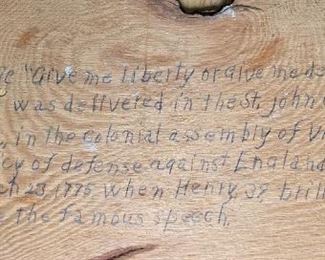 "Give me liberty or give me de
was delivered in the St. John
, in the colonial assembly of V
cy of defense against England
ch 23, 1775 when Henry, 39, brill
the famous speech.